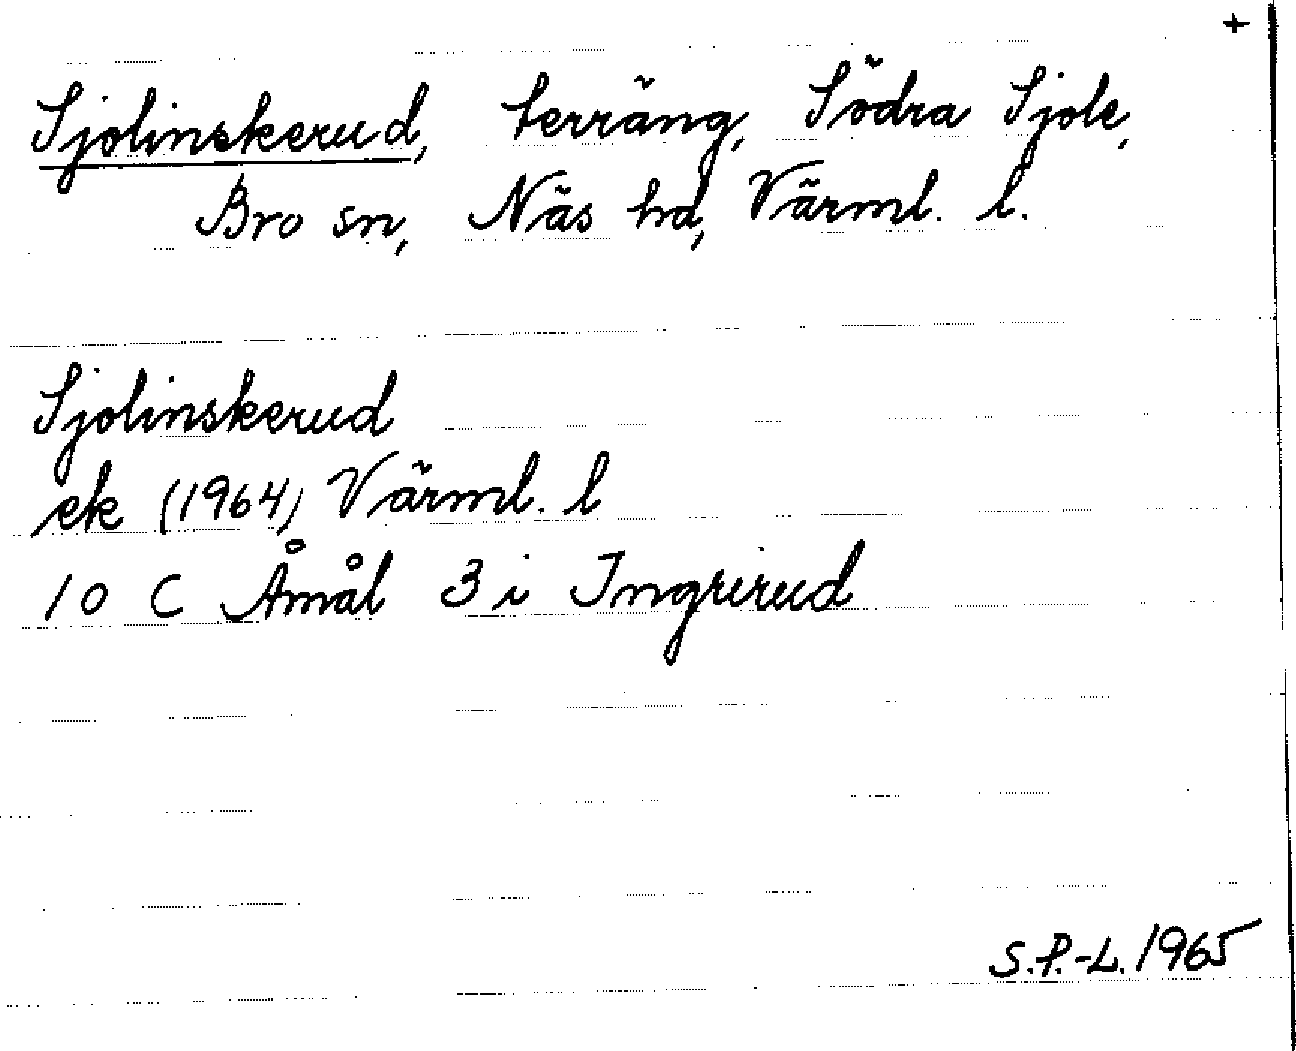 +
Sjolinskerud, terräng, Södra Sjole,
Bro sn, Näs hd, Värml. l.
Sjolinskerud
ek (1964) Värml. l
10 C Åmål 3 i Ingrirud
S.P.-L. 1965